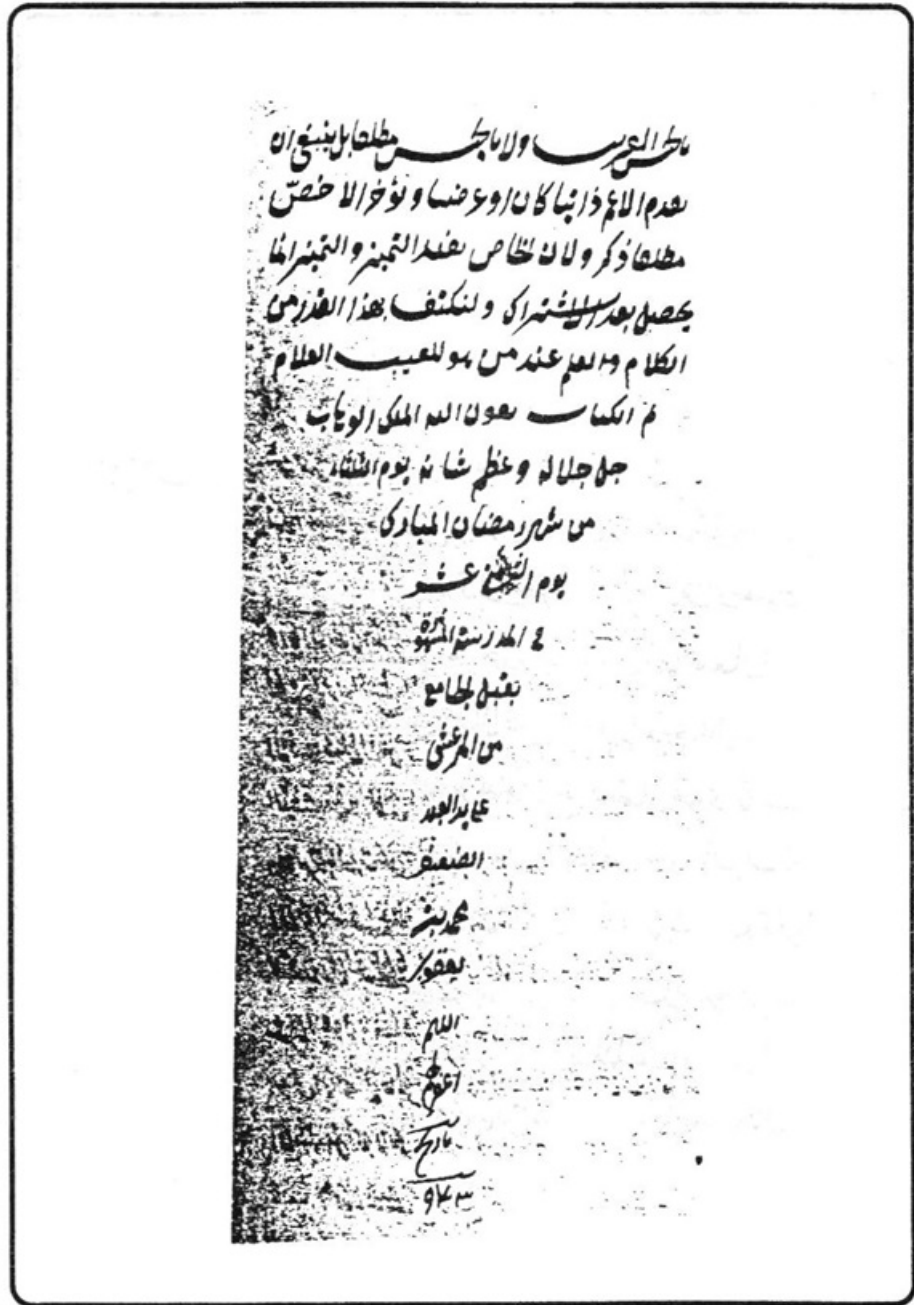 بالجنس القريب ولا بالجنس مطلقا بل ينبغي ان
يقدم الاعم ذاتيا كان او عرضيا ويؤخر الاخص
مطلقا ذكر ولان الخاص يفيد التميز والتميز انما
يحصل بعد الاشتراك ولنكتف بهذا القدر من
الكلام والعلم عند من هو للغيب العلام
تم الكتاب بعون الله الملك الوهاب
جل جلاله وعظم شانه يوم الثلثاء
من شهر رمضان المبارك
يوم عشر
في المدرسة المشهورة
بقبل الجامع
من المرعشي
على يد العبد
الضعيف
محمد بن
يعقوب
اللهم
اغفر
تاريخ
٩٧٣